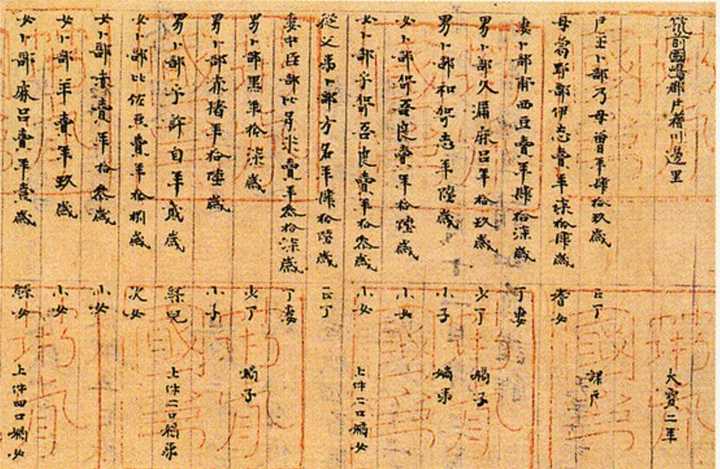 筑前國嶋郡戸籍川邊里 大寶二年
戸主卜部乃母曽年肆拾玖歳 正丁 課戸
母葛野部伊志賣年柒拾肆歳 耆女
妻卜部甫西豆賣年肆拾柒歳 丁妻
男卜部久漏麻呂年拾玖歳 少丁 嫡子
男卜部和哿志年陸歳 小子 嫡弟
女卜部哿吾良賣年拾陸歳 小女
女卜部乎哿吾良賣年拾參歳 小女 上件二口嫡女
従父弟卜部方名年肆拾陸歳 正丁
妻中臣部比多米賣年參拾柒歳 丁妻
男卜部黒年拾柒歳 少丁 嫡子
男卜部赤猪年拾陸歳 小子
男卜部乎許自年貮歳 緑兒 上件二口嫡弟
女卜部比佐豆賣年拾捌歳 次女
女卜部赤賣年拾參歳 小女
女卜部羊賣年玖歳 小女
女卜部麻呂賣年壹歳 緑女 上件四口嫡女